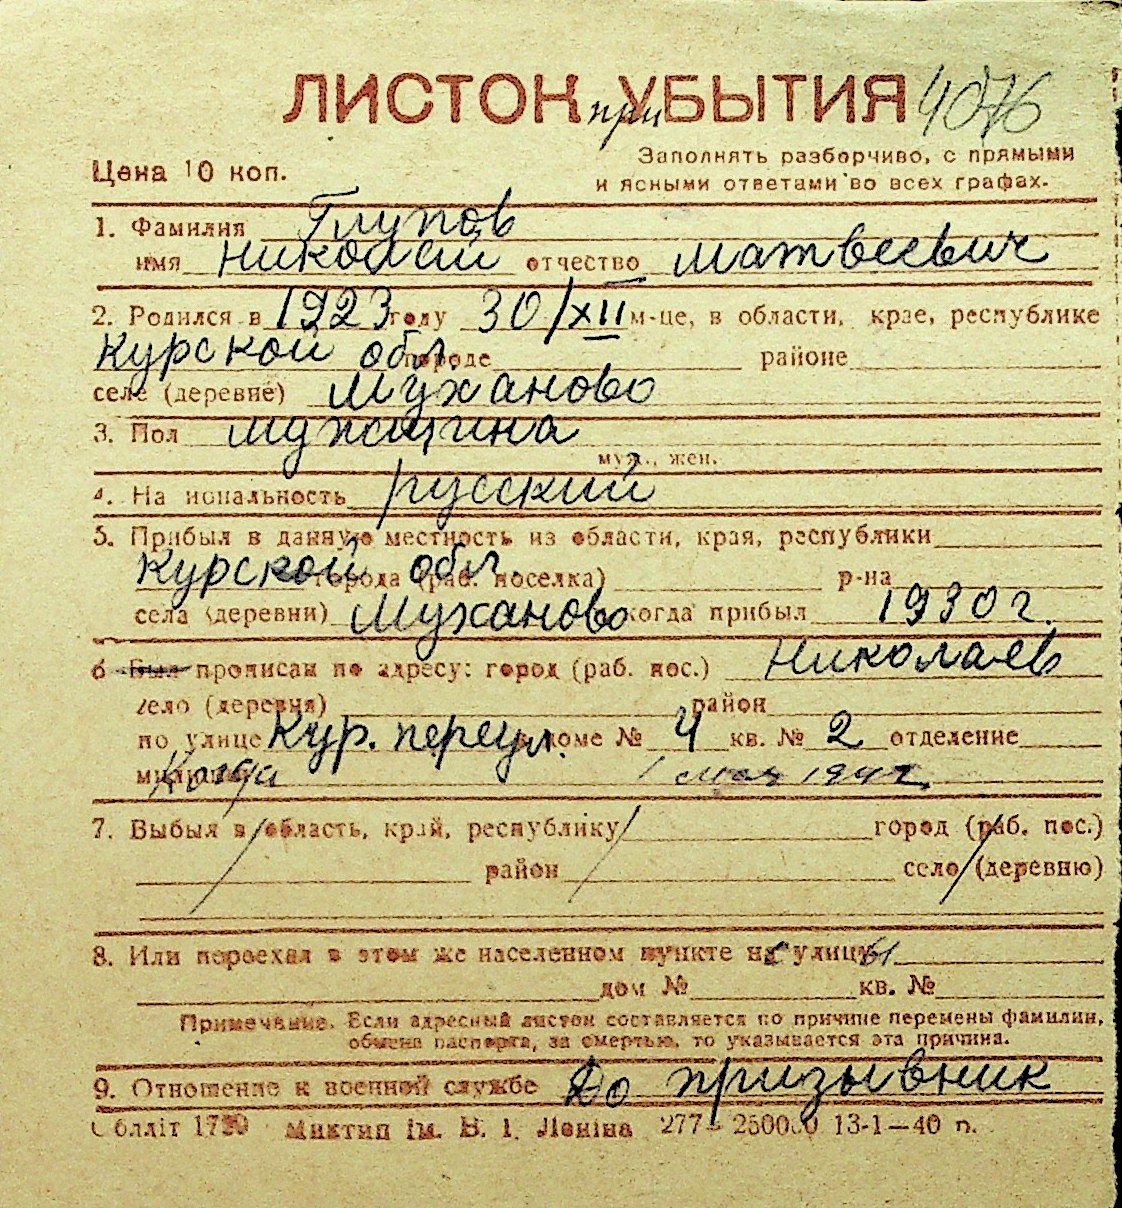 ЛИСТОК при УБЫТИЯ 4076
Цена 10 коп.
Заполнять разборчиво, с прямыми
и ясными ответами во всех графах.
1. Фамилия Глупов
имя Николай отчество Матвеевич
2. Родился в 1923 году 30/XII м-це, в области, крае, республике
Курской обл. городе районе
селе (деревне) Муханово
3. Пол мужщина
муж., жен.
4. На иональность русский
5. Прибыл в данную местность из области, края, республики
Курской обл. города (раб. поселка) р-на
села (деревни) Муханово когда прибыл 1930 г.
6 Был прописан по адресу: город (раб. пос.) Николаев
село (деревня) район
по улице Кур. переул. в доме № 4 кв. № 2 отделение
милиции Когда 1 мая 194
7. Выбыл в область, край, республику город (раб. пос.)
район село (деревню)
8. Или переехал в этом же населенном пункте на с улицу ы
дом № кв. №
Примечание. Если адресный листок составляется по причине перемены фамилии,
обмена паспорта, за смертью, то указывается эта причина.
9. Отношение к военной службе До призывник
Облліт 1720 Миктип ім. В. І. Леніна 277 – 250000 13-1—40 п.